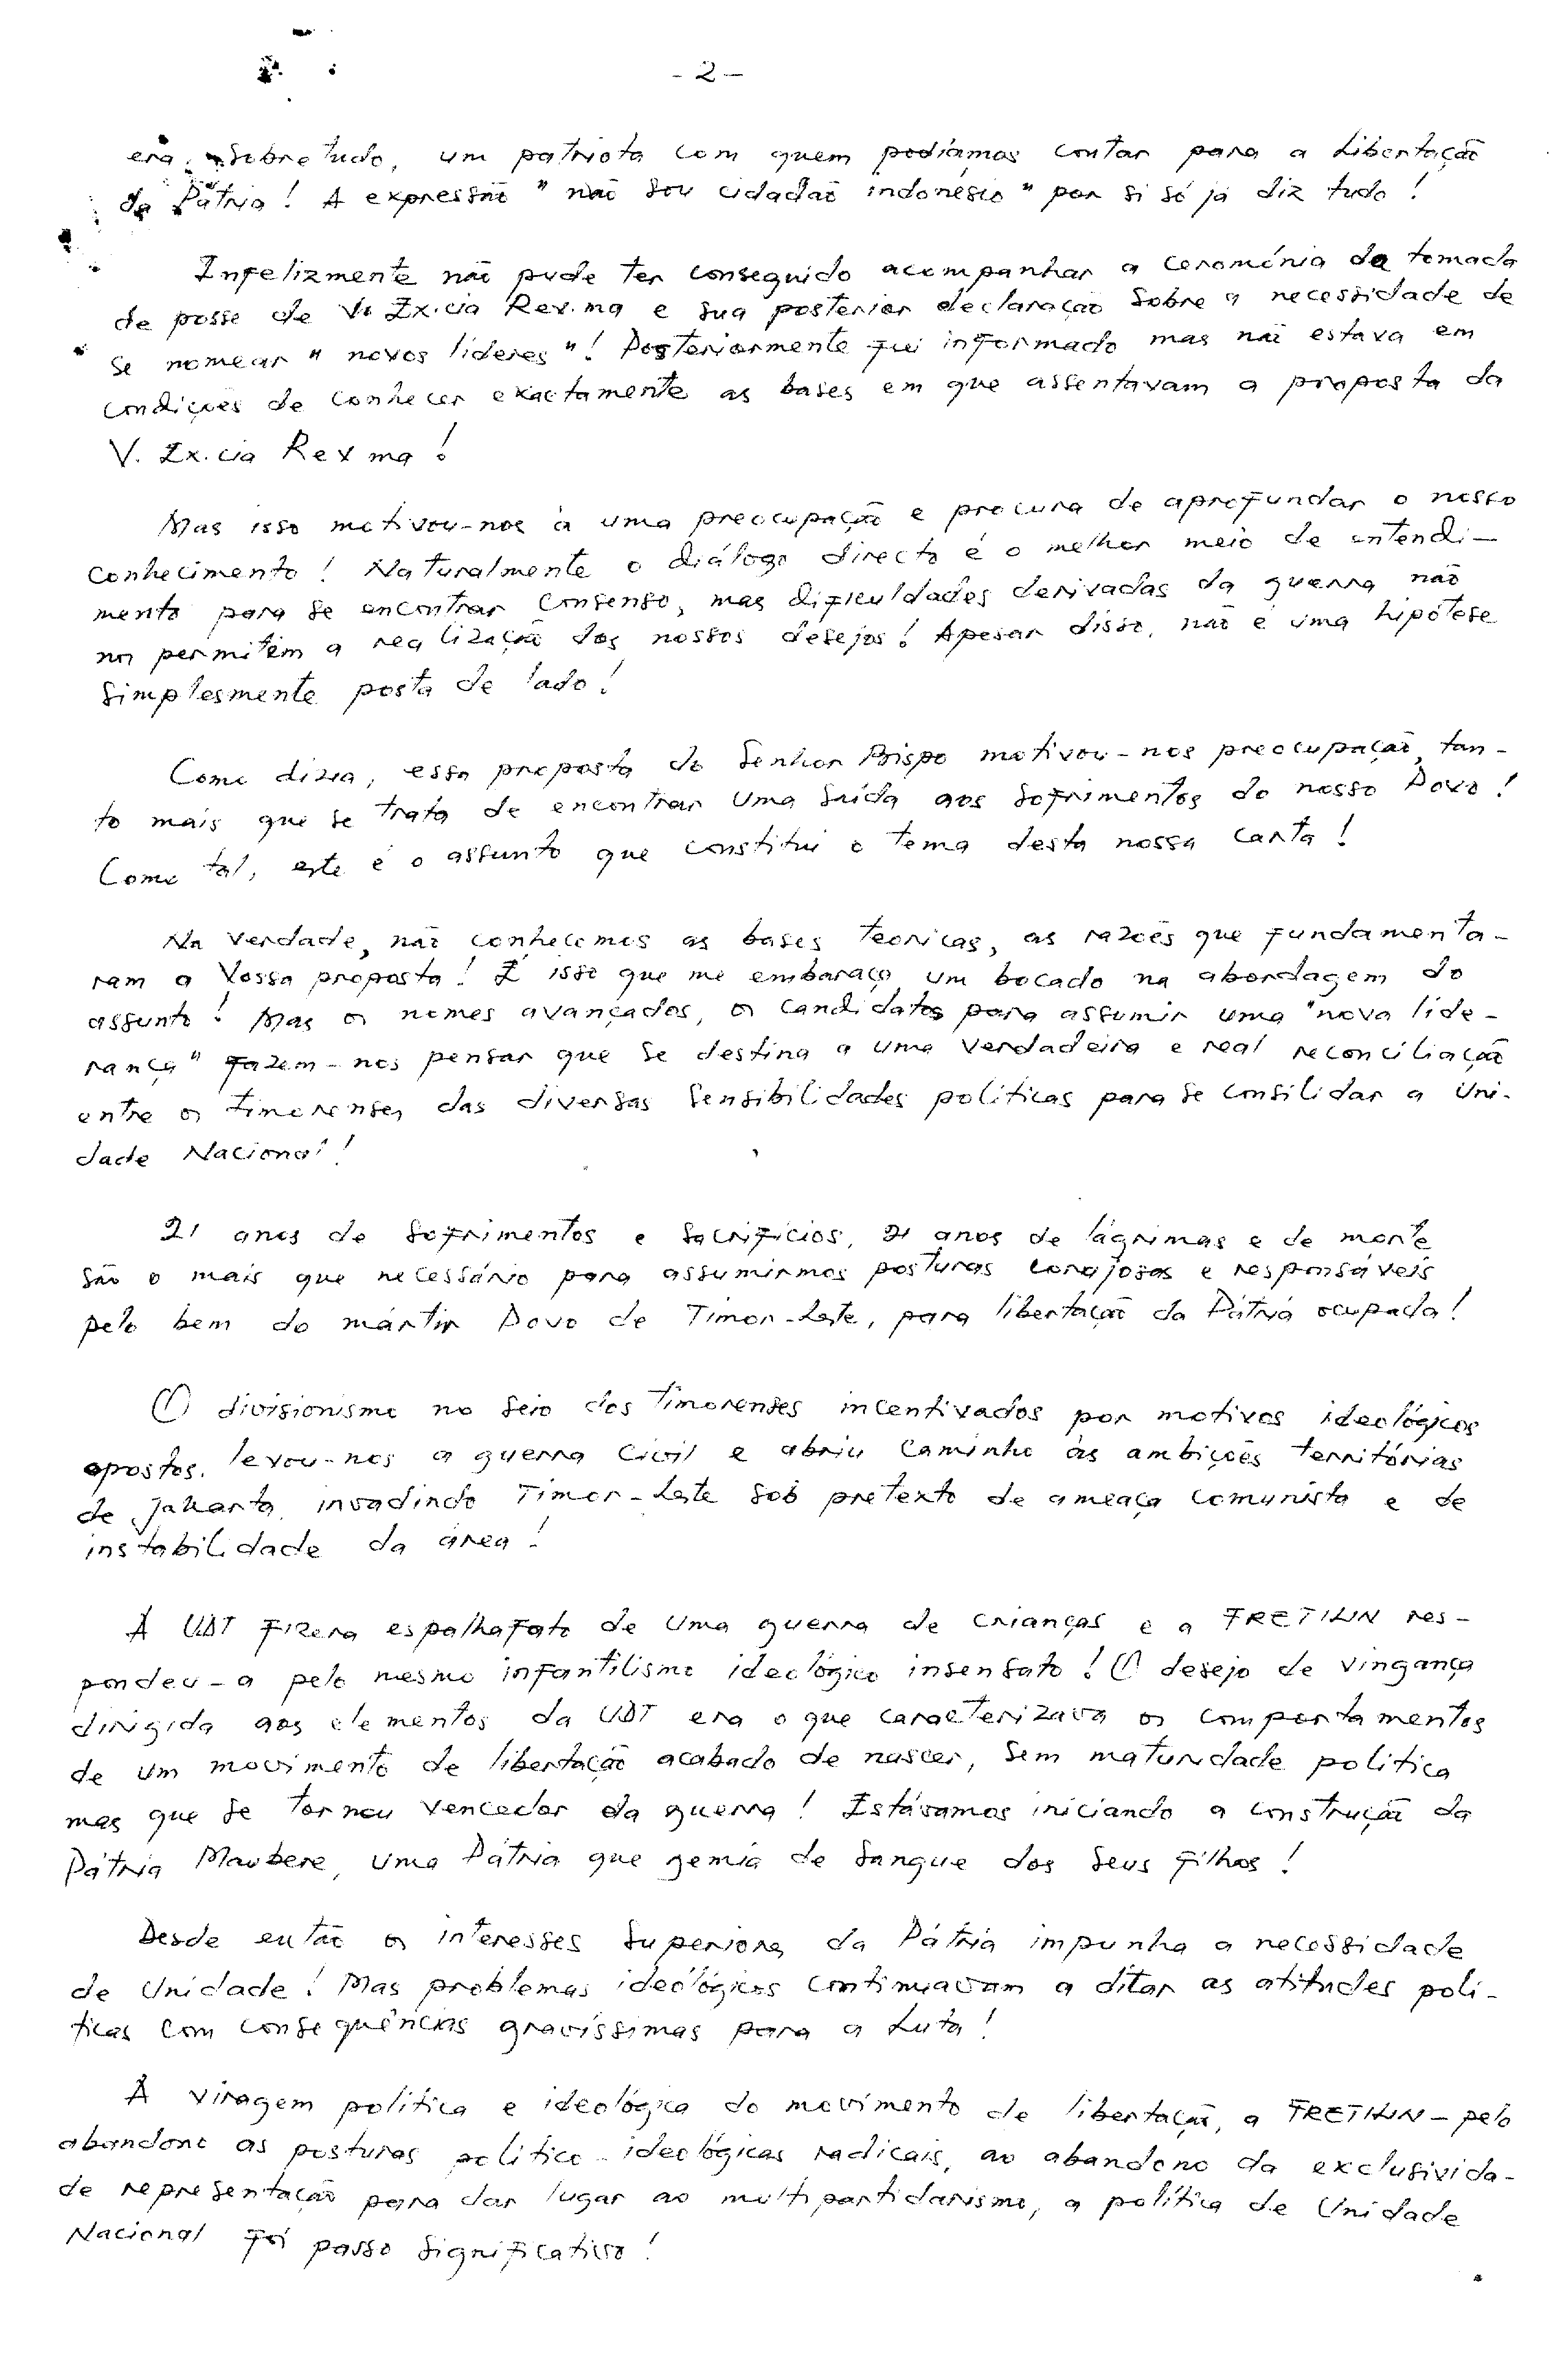 - 2 -
era, sobretudo, um patriota com quem podíamos contar para a Libertação
da Pátria! A expressão "não sou cidadão indonésio" por si só já diz tudo!
Infelizmente não pude ter conseguido acompanhar a ceremónia da tomada
de posse de V. Ex.cia Rev.ma e sua posterior declaração sobre a necessidade de
se nomear "novos líderes"! Posteriormente fui informado mas não estava em
condições de conhecer exactamente as bases em que assentavam a proposta da
V. Ex.cia Rev ma!
Mas isso motivou-nos à uma preocupação e procura de aprofundar o nosso
conhecimento! Naturalmente o diálogo directo é o melhor meio de entendi-
mento para se encontrar consenso, mas dificuldades derivadas da guerra não
nos permitem a realização dos nossos desejos! Apesar disso, não é uma hipótese
simplesmente posta de lado!
Como dizia, essa proposta do Senhor Bispo motivou-nos preocupação, tan-
to mais que se trata de encontrar uma saída aos sofrimentos do nosso Povo!
Como tal, este é o assunto que constitui o tema desta nossa carta!
Na verdade, não conhecemos as bases teóricas, as razões que fundamenta-
ram a Vossa proposta! É isso que me embaraça um bocado na abordagem do
assunto! Mas os nomes avançados, os candidatos para assumir uma "nova lide-
rança" fazem-nos pensar que se destina a uma verdadeira e real reconciliação
entre os timorenses das diversas sensibilidades políticas para se consilidar a Uni-
dade Nacional!
21 anos de sofrimentos e sacrifícios, 21 anos de lágrimas e de morte
são o mais que necessário para assumirmos posturas corajosas e responsáveis
pelo bem do mártir Povo de Timor-Leste, para libertação da Pátria ocupada!
O divisionismo no seio dos Timorenses incentivados por motivos ideológicos
opostos, levou-nos a guerra civil e abriu caminho às ambições territórias
de Jakarta, invadindo Timor-Leste sob pretexto de ameaça comunista e de
instabilidade da área!
A UDT fizera espalhafato de uma guerra de crianças e a FRETILIN res-
pondeu-a pelo mesmo infantilismo ideológico insensato! O desejo de vingança
dirigida aos elementos da UDT era o que caracterizava os comportamentos
de um movimento de libertação acabado de nascer, sem maturidade política
mas que se tornou vencedor da guerra! Estávamos iniciando a construção da
Pátria Maubere, uma Pátria que gemia de sangue dos seus filhos!
Desde então os interesses superiores da Pátria impunha a necessidade
de Unidade! Mas problemas ideológicos continuavam a ditar as atitudes polí-
ticas com consequências gravíssimas para a Luta!
A viragem política e ideológica do movimento de libertação, a FRETILIN - pelo
abandono as posturas político-ideológicas radicais, ao abandono da exclusivida-
de representação para dar lugar ao multipartidarismo, a política de Unidade
Nacional foi passo significativo!